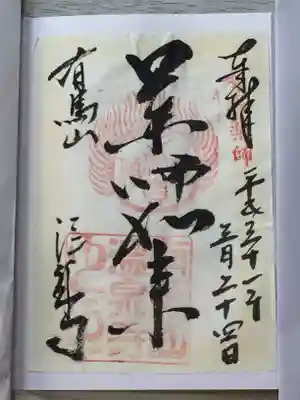 奉拝
平成三十一年
三月二十四日
薬師如来
有馬山
温泉寺